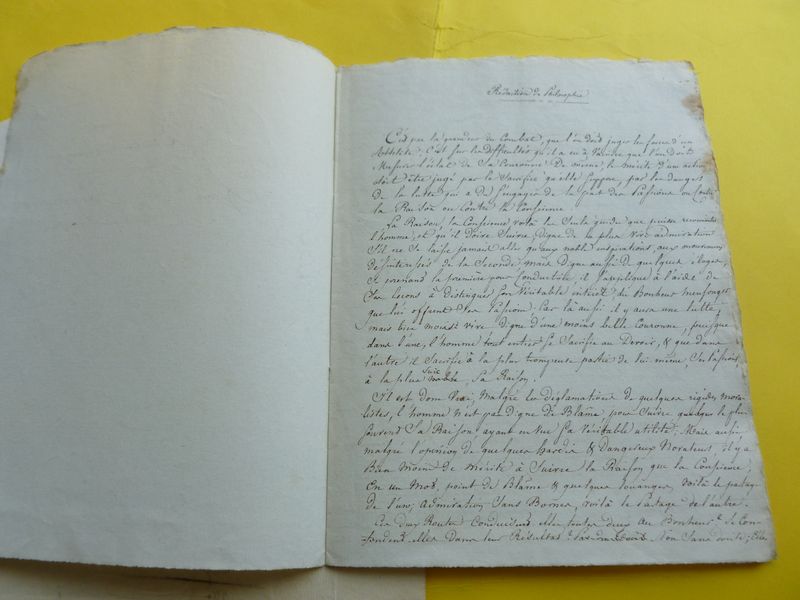 Rédaction de Philosophie
C'est par la grandeur du Combat, que l'on doit juger la force d'un
Athlète; C'est sur les difficultés qu'il a eu à Vaincre que l'on doit
Mesurer l'éclat de Sa Couronne. De même le mérite d'une action
doit être jugé par le Sacrifice qu'elle Suppose, par les dangers
De la lutte qui a dû S'engager de la part des Passions ou Contre
la Raison ou Contre la Conscience.
La Raison, la Conscience voilà les Seuls guides que puisse reconnaître
l'homme, et qu'il Doive Suivre; Digne de la plus vive admiration
S'il ne Se laisse jamais aller qu'aux nobles inspirations, aux mouvemens
Désintéressés de la Seconde; mais Digne aussi de quelques éloges,
Si prenant la première pour conductrice, il S'applique à l'aide de
Ses leçons à distinguer Son Véritable intérêt, du Bonheur mensonger
que lui offrent Ses Passions. Car là aussi il y aura une lutte,
mais bien moins vive. Digne d'une moins belle Couronne, puisque
dans l'une, l'homme tout entier Se Sacrifie au Devoir, & que dans
l'autre il Sacrifie à la plus trompeuse partie de lui même, Ses Passions,
à la plus noble, Sa Raison.
Il est donc Vrai, Malgré les déclamations de quelques rigides mora-
listes, l'homme n'est pas Digne de Blâme pour Suivre le plus
Souvent Sa Raison ayant en vue Sa Véritable utilité; Mais aussi
malgré l'opinion de quelques hardis & Dangereux Novateurs il y a
Bien Moins de Mérite à Suivre la Raison que la Conscience;
En un Mot, point de Blâme & quelques louanges, Voilà le partage
de l'un; Admiration Sans Bornes, voilà le Partage de l'autre.
Ces deux Routes Conduisent Elles toutes deux au Bonheur? Se Con-
-fondent-elles Dans leur Résultat? Non Sans doute; Elle